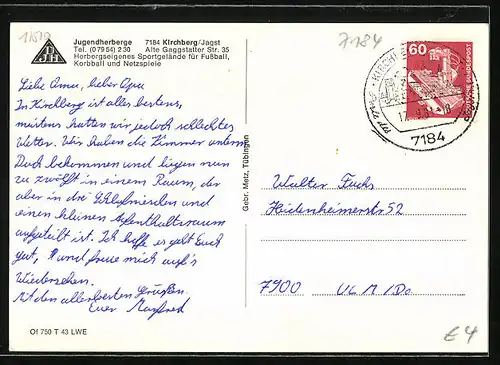 11519
Jugendherberge 7184 Kirchberg/Jagst
Tel. (07954) 230 Alte Gaggstatter Str. 35
Herbergseigenes Sportgelände für Fußball,
Korbball und Netzspiele
7184
60
DEUTSCHE BUNDESPOST
7184
Liebe Oma, lieber Opa
In Kirchberg ist alles bestens,
meistens hatten wir jedoch schlechtes
Wetter. Wir haben die Zimmer unterm
Dach bekommen und liegen nun
zu zwölft in einem Raum, der
aber in drei Schlafnischen und
einen kleinen Aufenthaltsraum
aufgeteilt ist. Ich hoffe es geht Euch
gut, und freue mich auf's
Wiedersehen.
Mit den allerbesten Grüßen
Euer Manfred
Gebr. Metz, Tübingen
Walter Fuchs
Heidenheimerstr 52
7900 ULM/Do.
Of 750 T 43 LWE
€4